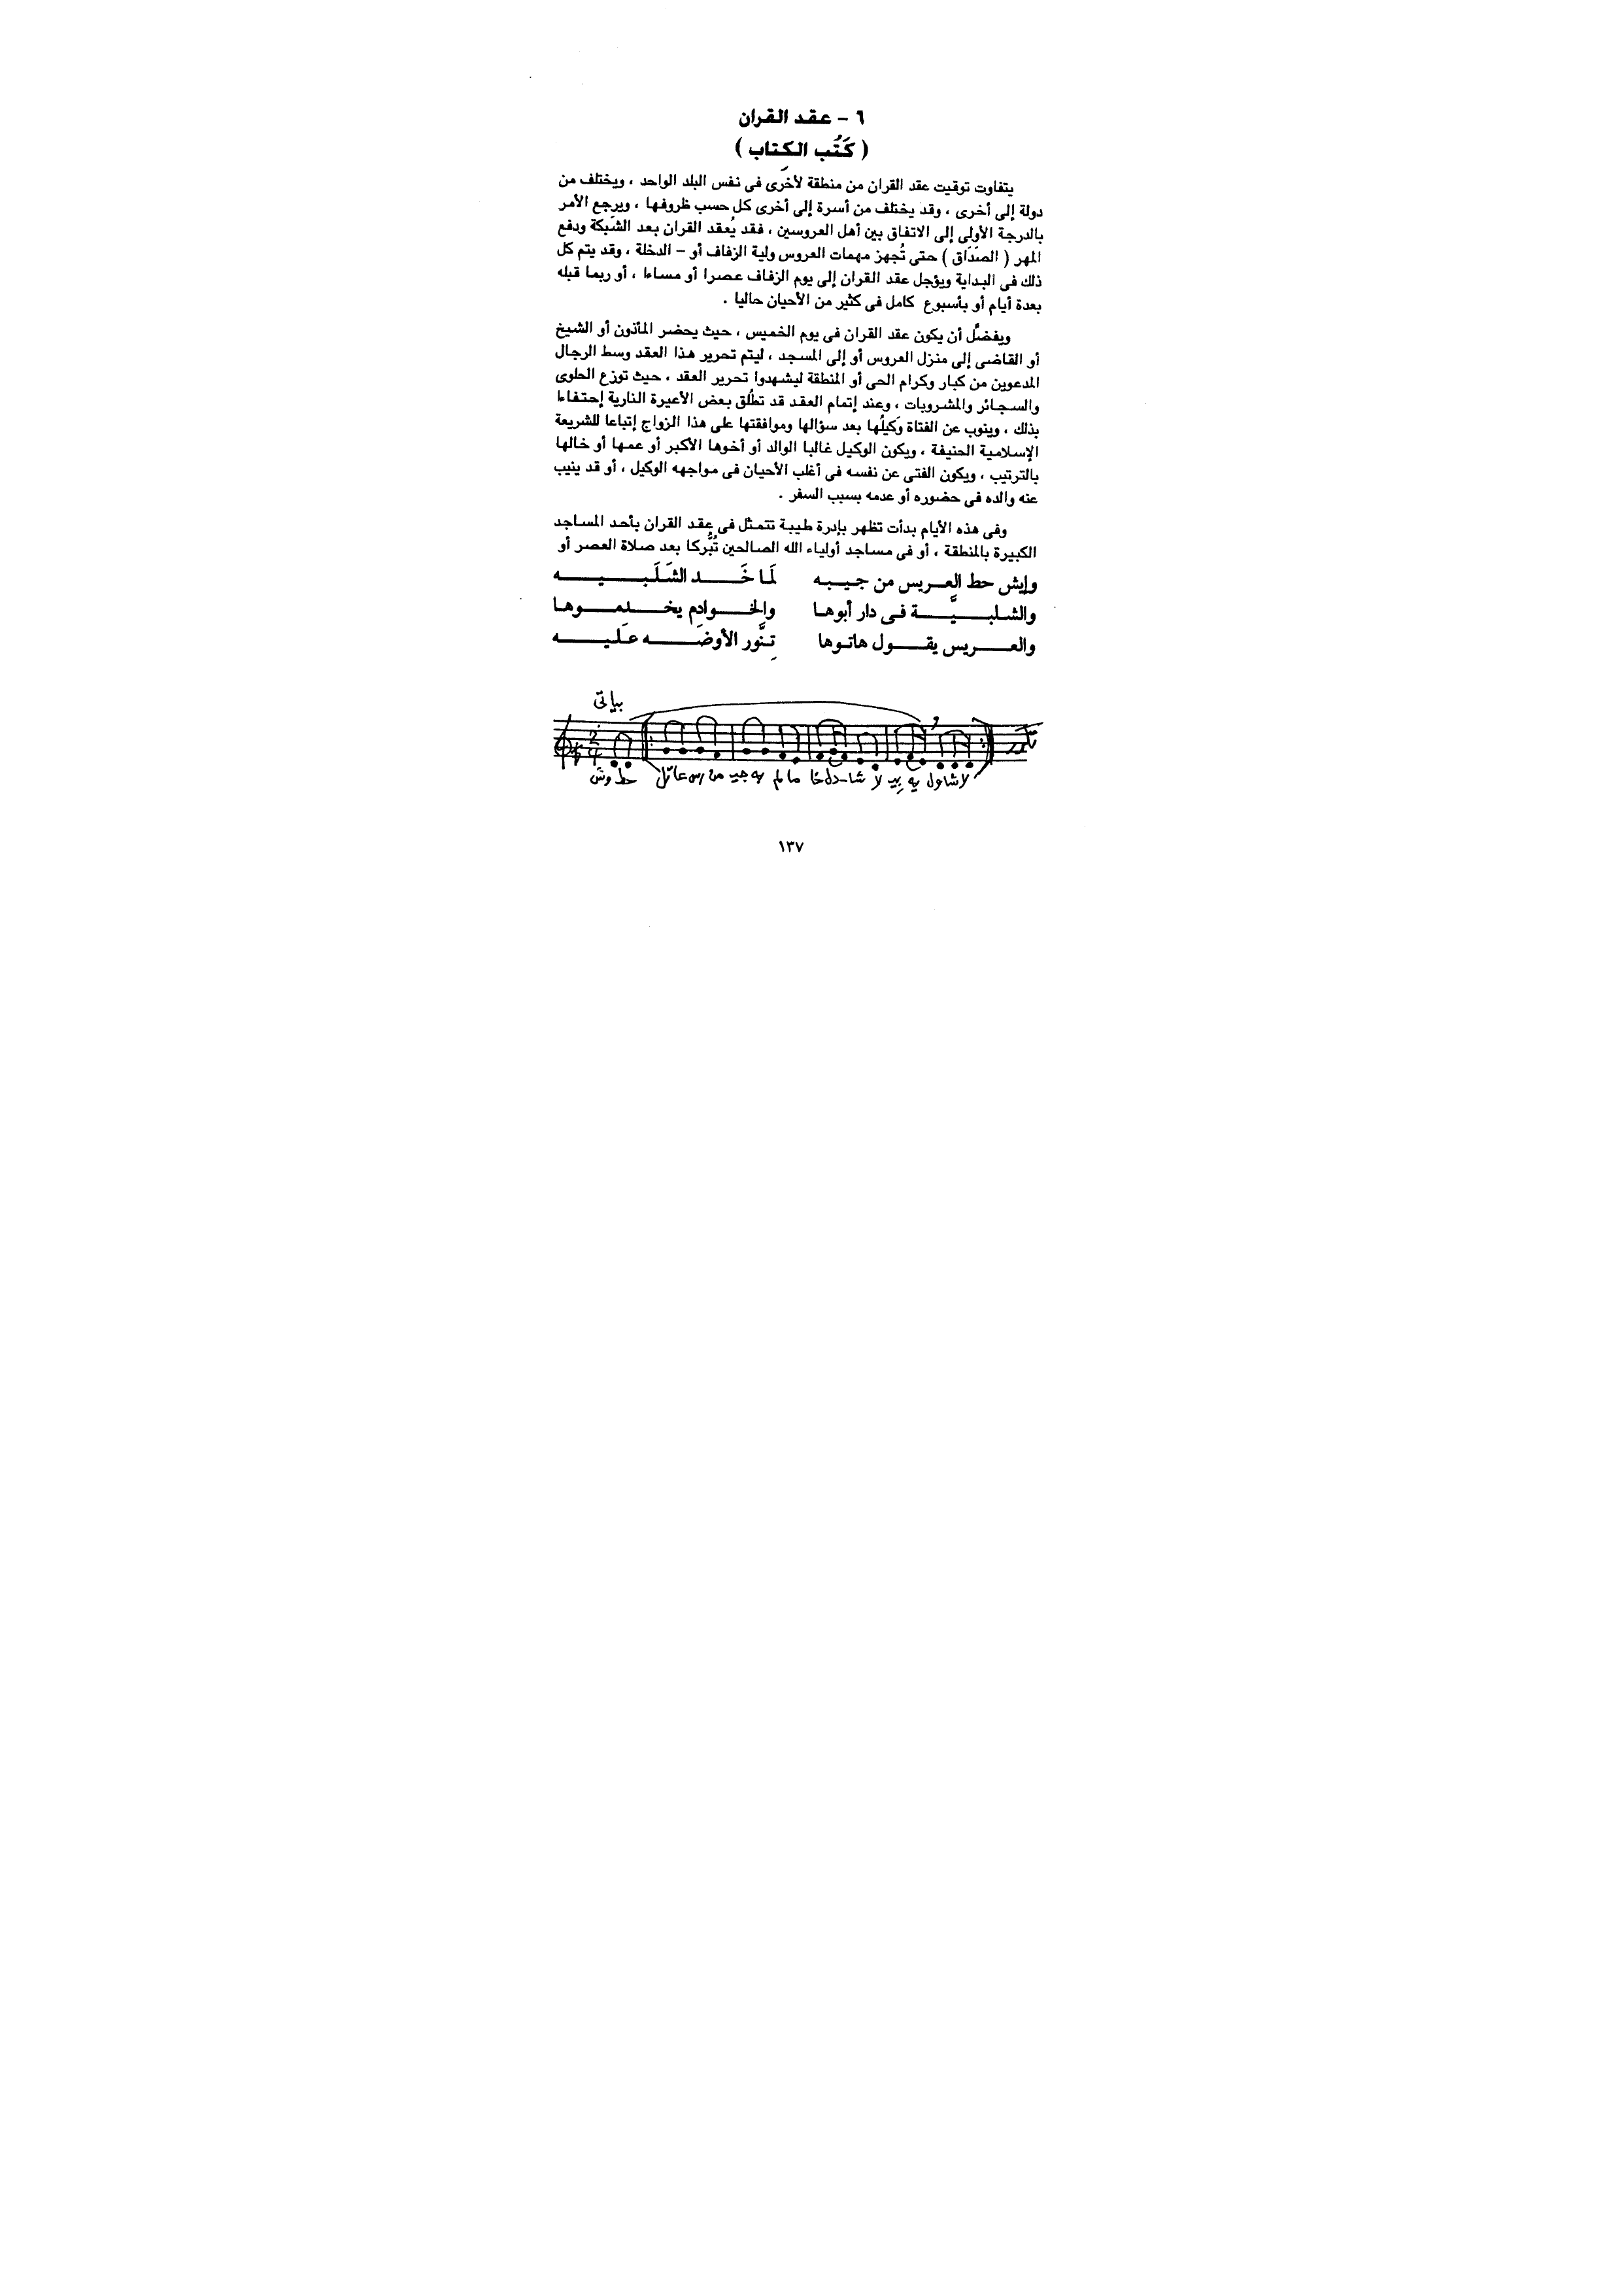 ٦ – عقد القران
( كَتُب الكِتاب )
يتفاوت توقيت عقد القران من منطقة لأخرى فى نفس البلد الواحد ، ويختلف من
دولة إلى أخرى ، وقد يختلف من أسرة إلى أخرى كل حسب ظروفها ، ويرجع الأمر
بالدرجة الأولى إلى الاتفاق بين أهل العروسين ، فقد يُعقد القران بعد الشَبكة ودفع
المهر ( الصَدَاق ) حتى تُجهز مهمات العروس ولية الزفاف أو – الدخلة ، وقد يتم كل
ذلك فى البداية ويؤجل عقد القران إلى يوم الزفاف عصرا أو مساءا ، أو ربما قبله
بعدة أيام أو بأسبوع كامل فى كثير من الأحيان حاليا .
ويفضلُّ أن يكون عقد القران فى يوم الخميس ، حيث يحضر المأذون أو الشيخ
أو القاضى إلى منزل العروس أو إلى المسجد ، ليتم تحرير هذا العقد وسط الرجال
المدعوين من كبار وكرام الحى أو المنطقة ليشهدوا تحرير العقد ، حيث توزع الحلوى
والسجائر والمشروبات ، وعند إتمام العقد قد تطلُق بعض الأعيرة النارية إحتفاءا
بذلك ، وينوب عن الفتاة وَكيلُها بعد سؤالها وموافقتها على هذا الزواج إتباعا للشريعة
الإسلامية الحنيفة ، ويكون الوكيل غالبا الوالد أو أخوها الأكبر أو عمها أو خالها
بالترتيب ، ويكون الفتى عن نفسه فى أغلب الأحيان فى مواجهه الوكيل ، أو قد ينيب
عنه والده فى حضوره أو عدمه بسبب السفر .
وفى هذه الأيام بدأت تظهر بإدرة طيبة تتمثل فى عقد القران بأحد المساجد
الكبيرة بالمنطقة ، أو فى مساجد أولياء الله الصالحين تُبُّركا بعد صلاة العصر أو
وإيش حط العريس من جيبه لَمَا خَد الشَلَبيه
والشلبيَّة فى دار أبوها والخوادِم يخدموها
والعريس يقول هاتوها تِنَّور الأوضَه عَليه
بياتى
١٣٧